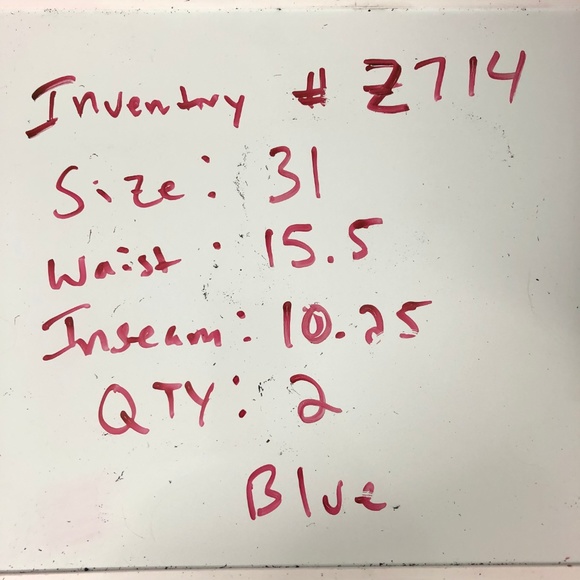 Inventory # Z714
Size: 31
Waist: 15.5
Inseam: 10.25
QTY: 2
Blue